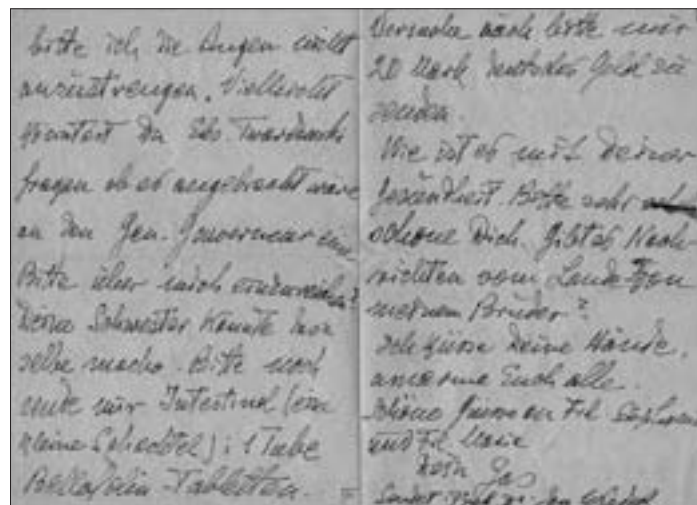 bitte ich die Augen nicht
anzustrengen. Vielleicht
könntest Du Edo. Twardowski
fragen ob es angebracht wäre
an den Gen. Gouverneur eine
Bitte über mich einzureichen?
Deine Schwester könnte man
selbe mache. Bitte noch
sende mir Intestinol (eine
kleine Schachtel) i 1 Tube
Bellafolin-Tabletten.
Versuche auch bitte mir
20 Mark deutsches Geld zu
senden.
Wie ist es mit deiner
Gesundheit. Bitte sehr
schone Dich. Gibt es Nach
richten vom Lande von
meinem Bruder?
Ich küsse deine Hände,
umarme Euch alle.
Schöne Grüsse an Frl.
und Frl. Marie
Dein